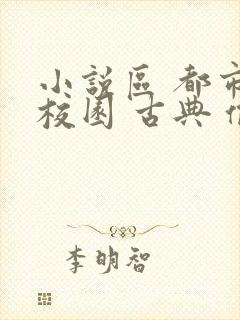 小說區 都市
校園 古典
李明智